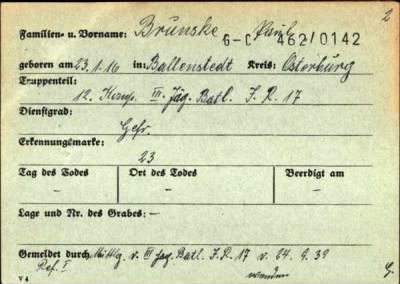 2
Familien- u. Vorname: Brunske Paul
G-C 462/0142
geboren am 23.1.16 in: Ballenstedt Kreis: Osterburg
Truppenteil:
12. Komp. III. Jäg. Batl. I.R. 17
Dienstgrad:
Gefr.
Erkennungsmarke:
23
Tag des Todes Ort des Todes Beerdigt am
– – –
Lage und Nr. des Grabes: –
Gemeldet durch Mittlg. v. III Jäg. Batl. I.R. 17 v. 24.9.39
Ref. I
V 4